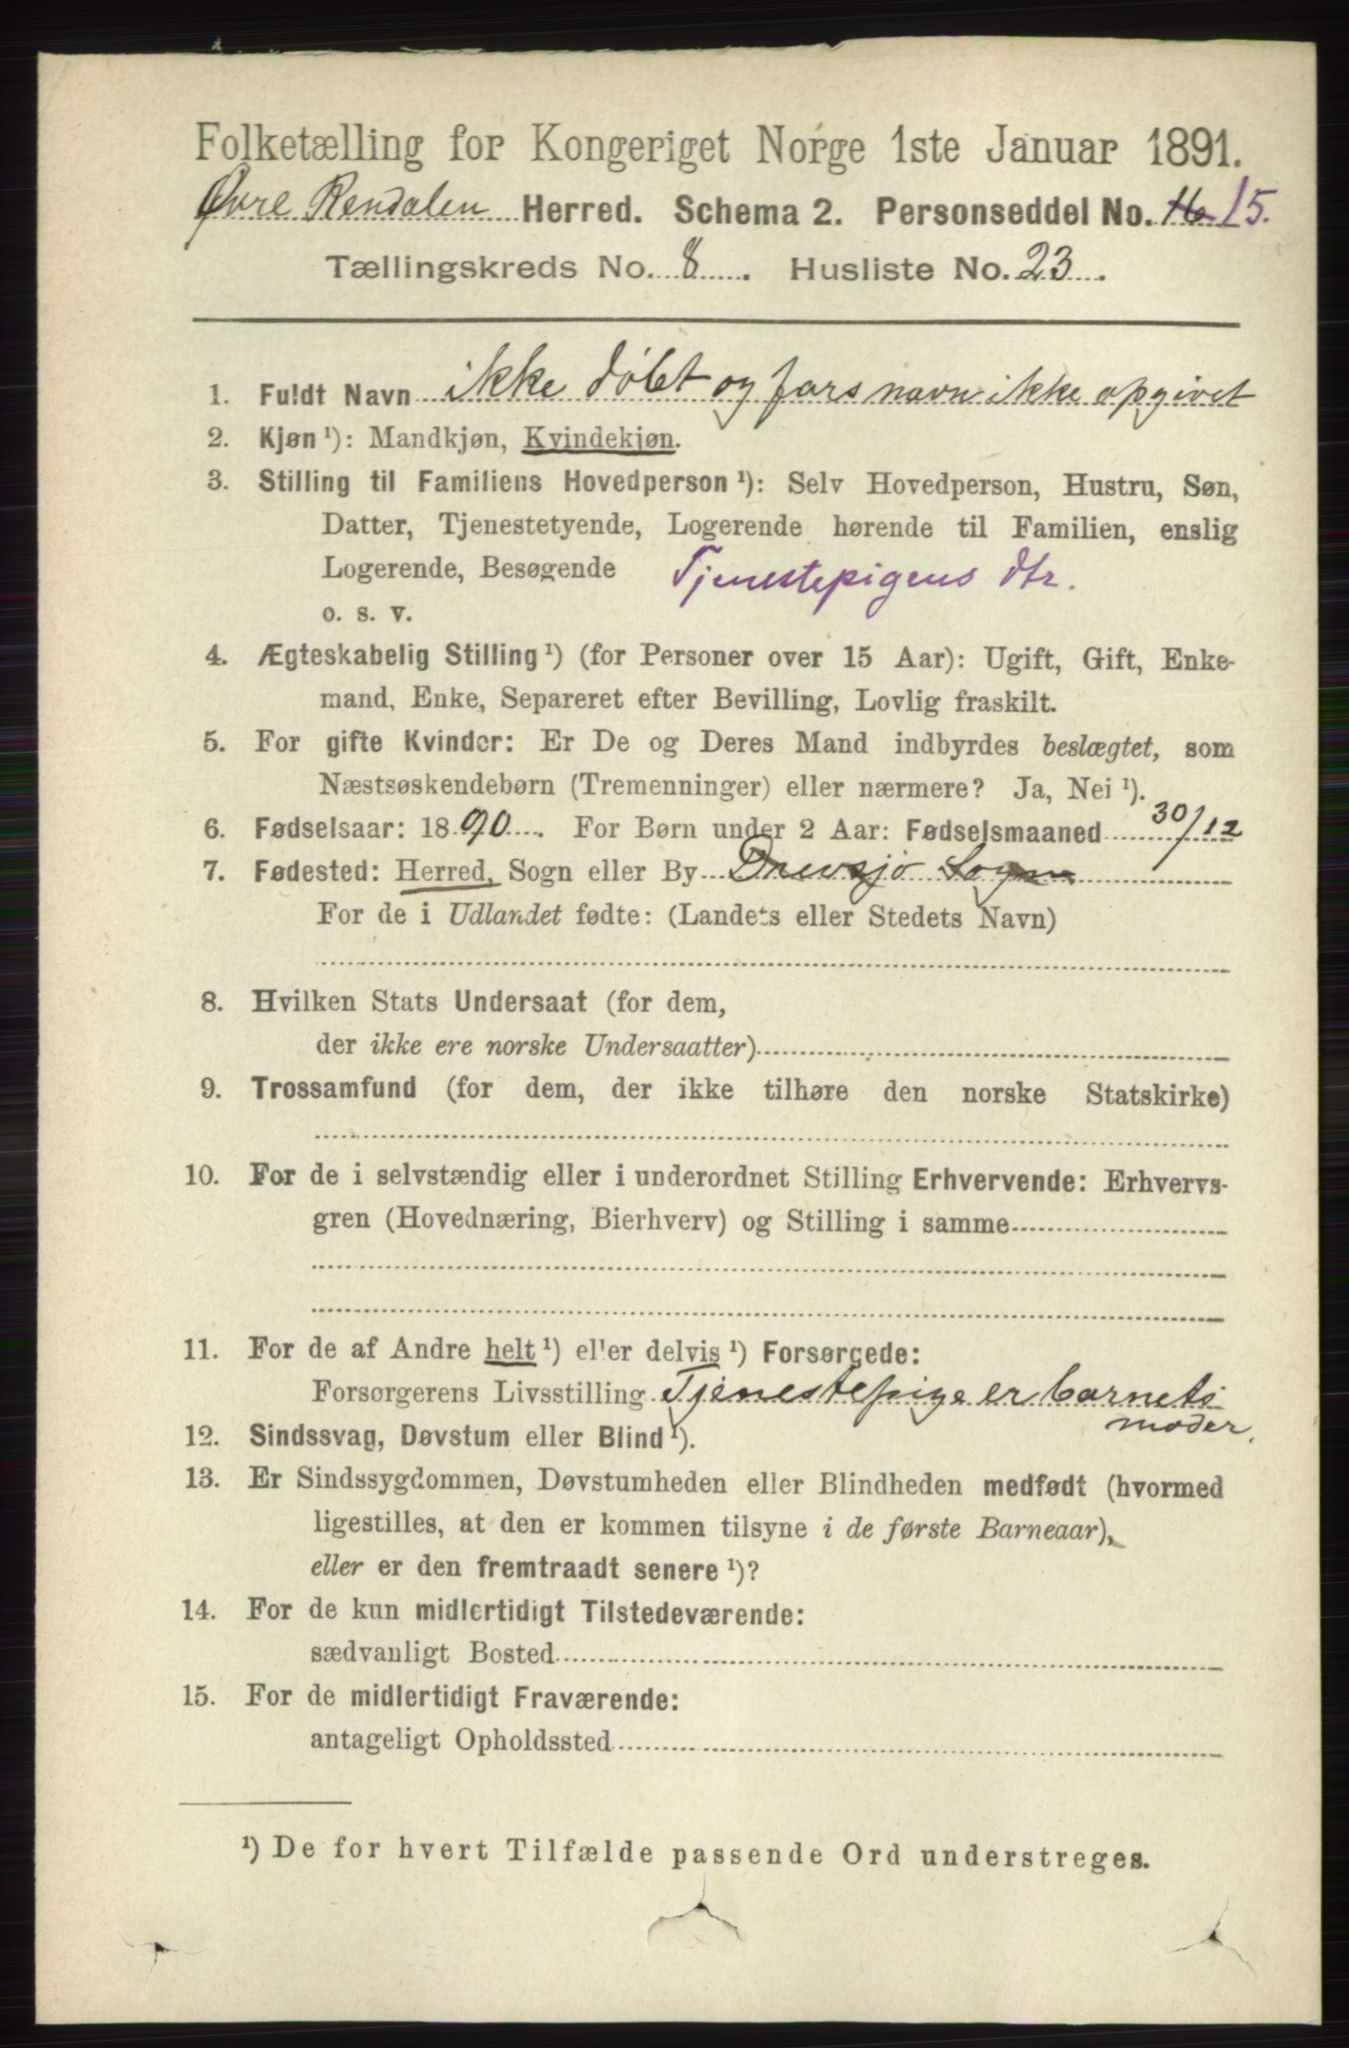 Folketælling for Kongeriget Norge 1ste Januar 1891.
Øvre Rendalen Herred. Schema 2. Personseddel No. 16 15.
Tællingskreds No. 8. Husliste No. 23.
1. Fuldt Navn ikke døbt og fars navn ikke opgivet
2. Kjøn ¹): Mandkjøn, Kvindekjøn.
3. Stilling til Familiens Hovedperson ¹): Selv Hovedperson, Hustru, Søn,
Datter, Tjenestetyende, Logerende hørende til Familien, enslig
Logerende, Besøgende Tjenestepigens dtr.
o. s. v.
4. Ægteskabelig Stilling ¹) (for Personer over 15 Aar): Ugift, Gift, Enke-
mand, Enke, Separeret efter Bevilling, Lovlig fraskilt.
5. For gifte Kvinder: Er De og Deres Mand indbyrdes beslægtet, som
Næstsøskendebørn (Tremenninger) eller nærmere? Ja, Nei ¹).
6. Fødselsaar: 1890. For Børn under 2 Aar: Fødselsmaaned 30/12
7. Fødested: Herred, Sogn eller By Drevsjø Sogn
For de i Udlandet fødte: (Landets eller Stedets Navn)
8. Hvilken Stats Undersaat (for dem,
der ikke ere norske Undersaatter)
9. Trossamfund (for dem, der ikke tilhøre den norske Statskirke)
10. For de i selvstændig eller i underordnet Stilling Erhvervende: Erhvervs-
gren (Hovednæring, Bierhverv) og Stilling i samme
11. For de af Andre helt ¹) eller delvis ¹) Forsørgede:
Forsørgerens Livsstilling Tjenestepige er barnets
moder.
12. Sindssvag, Døvstum eller Blind ¹).
13. Er Sindssygdommen, Døvstumheden eller Blindheden medfødt (hvormed
ligestilles, at den er kommen tilsyne i de første Barneaar),
eller er den fremtraadt senere ¹)?
14. For de kun midlertidigt Tilstedeværende:
sædvanligt Bosted
15. For de midlertidigt Fraværende:
antageligt Opholdssted
¹) De for hvert Tilfælde passende Ord understreges.